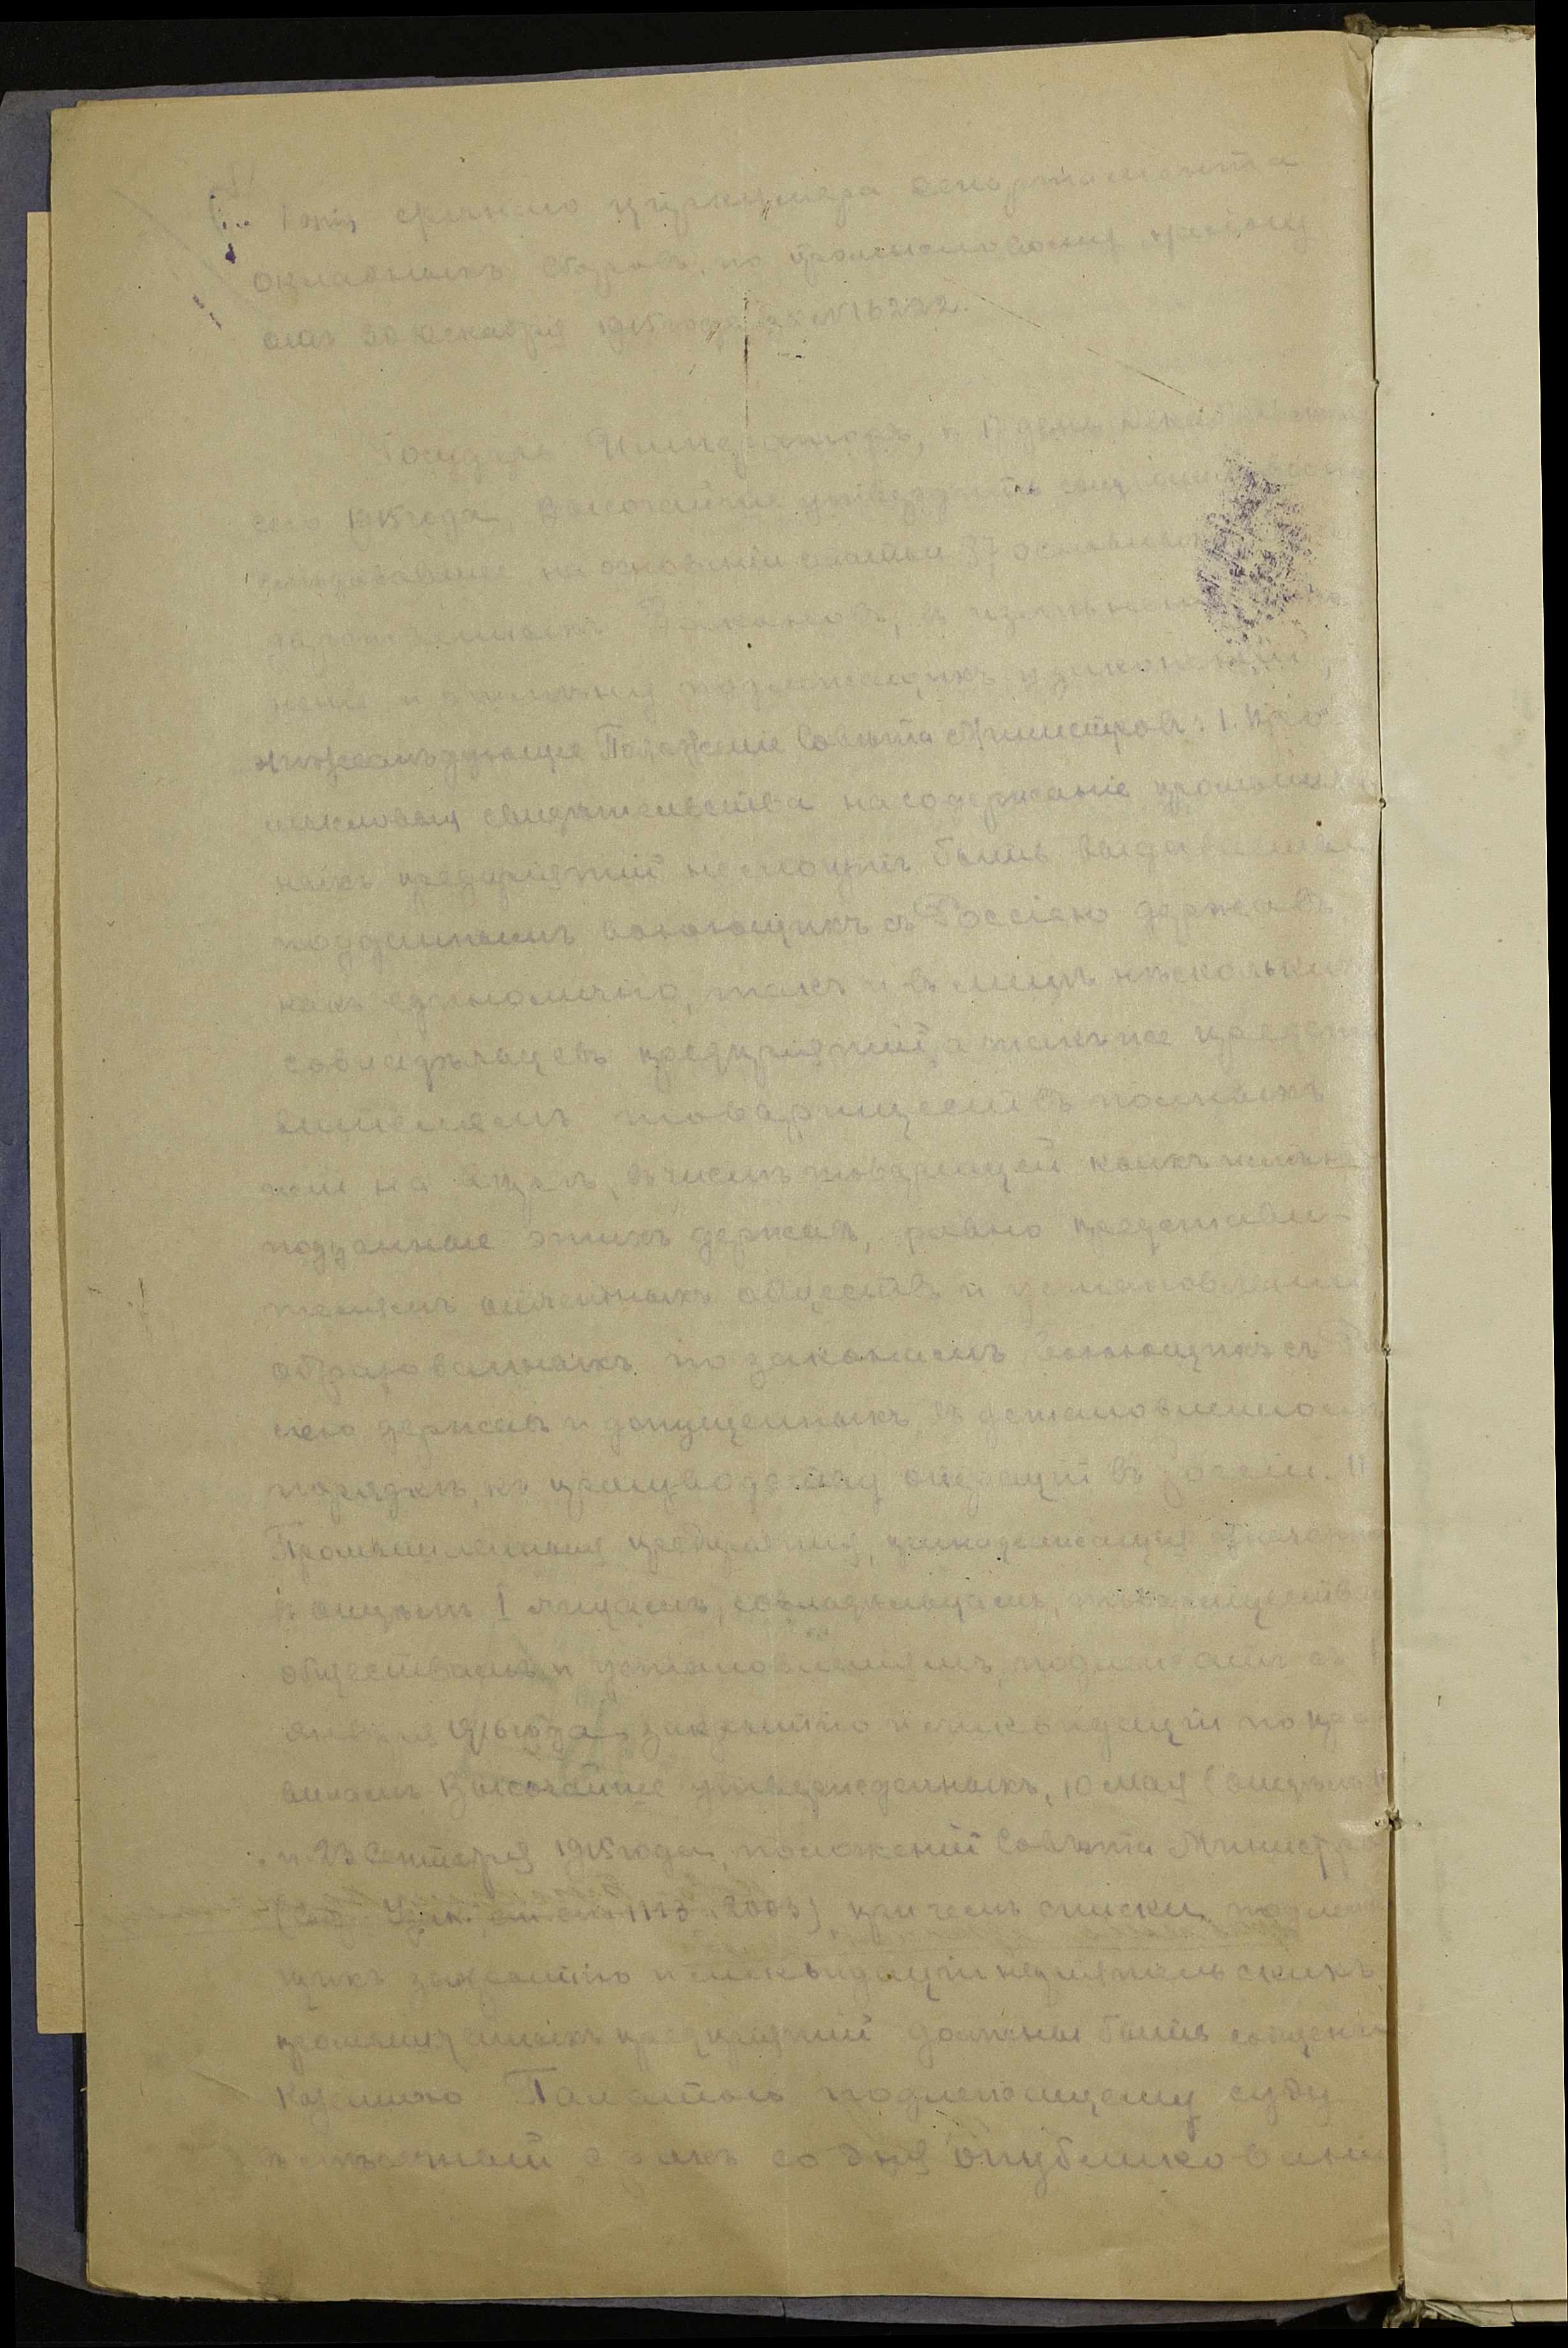 Копія срочнаго циркуляра департамента
окладныхъ сборовъ, по промысловому налогу
отъ 30 декабря 1915 года за №16222.
Государь Императоръ, въ 17 день декабря
сего 1915 года Высочайше утвердить соизволилъ
послѣдовавшее на основаніи статьи 87 основныхъ
дарственныхъ Законовъ, въ измѣненіе
неніе и отмѣну подлежащихъ узаконеній,
нижеслѣдующее Положеніе Совѣта Министровъ: I. Про
мысловыя свидѣтельства на содержаніе промышлен
ныхъ предпріятій не могутъ быть выдаваемы
подданнымъ воюющихъ съ Россіею державъ
какъ единолично, такъ и въ лицѣ нѣсколькихъ
совладѣльцевъ предпріятій, а также предста
вителямъ товариществъ полныхъ
или на вѣрѣ, въ числѣ товарищей коихъ имѣются
подданные этихъ державъ, равно представи-
телямъ акціонерныхъ обществъ и установленій,
образованныхъ по законамъ воюющихъ съ Рос
сіею державъ и допущенныхъ, въ установленномъ
порядкѣ, къ производству операцій въ Россіи. II
Промышленныя предпріятія, принадлежащія указаннымъ
въ отдѣлѣ I лицамъ, совладѣльцамъ, товариществамъ
обществамъ и установленіямъ, подлежатъ съ 1
января 1916 года закрытію и ликвидаціи по пра
виламъ Высочайше утвержденныхъ, 10 мая (отдѣлъ II
и 23 Сентября 1915 года, положеній Совѣта Министров
(Соб. Узак. ст. ст. 1113 и 2003) при чемъ списки подлежа
щихъ закрытію и ликвидаціи непріятельскихъ
промышленныхъ предпріятій должны быть сообщены
Казенною Палатою подлежащему суду
въ мѣсячный срокъ со дня опубликованія